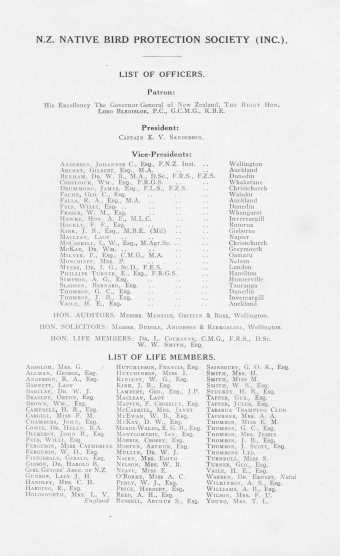 N.Z. NATIVE BIRD PROTECTION SOCIETY (INC.).
LIST OF OFFICERS.
Patron:
His Excellency The Governor-General of New Zealand, The Right Hon.
Lord Bledisloe, P.C., G.C.M.G., K.B.E.
President:
Captain E. V. Sanderson.
Vice-Presidents:
Andersen, Johannes C., Esq., F.N.Z. Inst. .. Wellington
Archey, Gilbert, Esq., M.A. .. Auckland
Benham, Dr. W. B., M.A., D.Sc., F.R.S., F.Z.S. Dunedin
Chrystall, Wm., Esq., F.R.G.S. .. Whakatane
Drummond, James, Esq., F.L.S., F.Z.S. .. Christchurch
Fache, Geo. C., Esq. .. Waiuku
Falla, R. A., Esq., M.A. .. Auckland
Fels, Willi, Esq. .. Dunedin
Fraser, W. M., Esq. .. Whangarei
Hawke, Hon. A. F., M.L.C. .. Invercargill
Huckly, F. F., Esq. .. Rotorua
Kirk, J. R., Esq., M.B.E. (Mil) .. Gisborne
Maclean, Lady .. Napier
McCaskill, L. W., Esq., M.Agr.Sc. .. Christchurch
McKay, Dr. Wm. .. Greymouth
Milner, F., Esq., C.M.G., M.A. .. Oamaru
Moncrieff, Mrs. P. .. Nelson
Myers, Dr. J. G., Sc.D., F.E.S. .. London
Phillips Turner, E., Esq., F.R.G.S. .. Hamilton
Simpson, A. G., Esq. .. Hunterville
Sladden, Bernard, Esq. .. Tauranga
Thomson, G. C., Esq. .. Dunedin
Thomson, J. B., Esq. .. Invercargill
Vaile, H. E., Esq. .. Auckland
HON. AUDITORS: Messrs. Menzies, Griffin & Ross, Wellington.
HON. SOLICITORS: Messrs. Buddle, Anderson & Kirkcaldie, Wellington.
HON. LIFE MEMBERS: Dr. L. Cockayne, C.M.G., F.R.S., D.Sc.
W. W. Smith, Esq.
LIST OF LIFE MEMBERS.
Absolom, Mrs. G.
Allman, George, Esq.
Anderson, R. A., Esq.
Barnett, Lady
Barclay, Dr. W. J.
Brasley, Orton, Esq.
Brown, Wm., Esq.
Campbell, H. R., Esq.
Cargill, Miss F. M.
Chambers, John, Esq.
Cowie, Dr. Helen, B.A.
Dickeson, John R., Esq.
Fels, Willi, Esq.
Ferguson, W. D., Esq.
Fitzgerald, Gerald, Esq.
Gibson, Dr. Harold B.
Girl Guides' Assn. of N.Z.
Gunson, Lady J. H.
Handley, Mrs. C. H.
Harding, R., Esq.
Holdsworth, Mrs. L. V.
England
Hutchinson, Francis, Esq.
Hutchinson, Miss I.
Kingley, W. G., Esq.
Kirk, J. R., Esq.
Lambert, Fred, Esq., J.P.
Maclean, Lady
Maplin, F. Crossley, Esq.
McCaskill, Mrs. Janet
McEwan, W. B., Esq.
McKay, D. W., Esq.
Mead-Wales, R. G., Esq.
Montgomerie, Ian, Esq.
Morris, Chorry, Esq.
Morton, Arthur, Esq.
Mullin, Dr. W. J.
Nairn, Mrs. Edith
Nelson, Mrs. W. B.
Neave, Miss E.
O'Rorke, Miss A. C.
Percy, W. J., Esq.
Peice, Herbert, Esq.
Reid, A. H., Esq.
Russell, Arthur S., Esq.
Sainsbury, G. O. K., Esq.
Smith, Mrs. H.
Smith, Miss M.
Smith, W. S., Esq.
Stuckey, H. B., Esq.
Tapper, Guk., Esq.
Tapper, Jules, Esq.
Tararua Tramping Club
Taverner, Mrs. A. A.
Thomson, Miss E. M.
Thomson, G. C., Esq.
Thomson, Mrs. Jessie
Thomson, J. B., Esq.
Thomson, J. Scott, Esq.
Thomsons Ltd.
Turnbull, Miss S.
Turner, Geo., Esq.
Vaile, H. E., Esq.
Warren, Dr. Ernest, Natal
Wilkinson, A. S., Esq.
Williams, A. B., Esq.
Wilson, Mrs. F. U.
Young, Mrs. T. L.